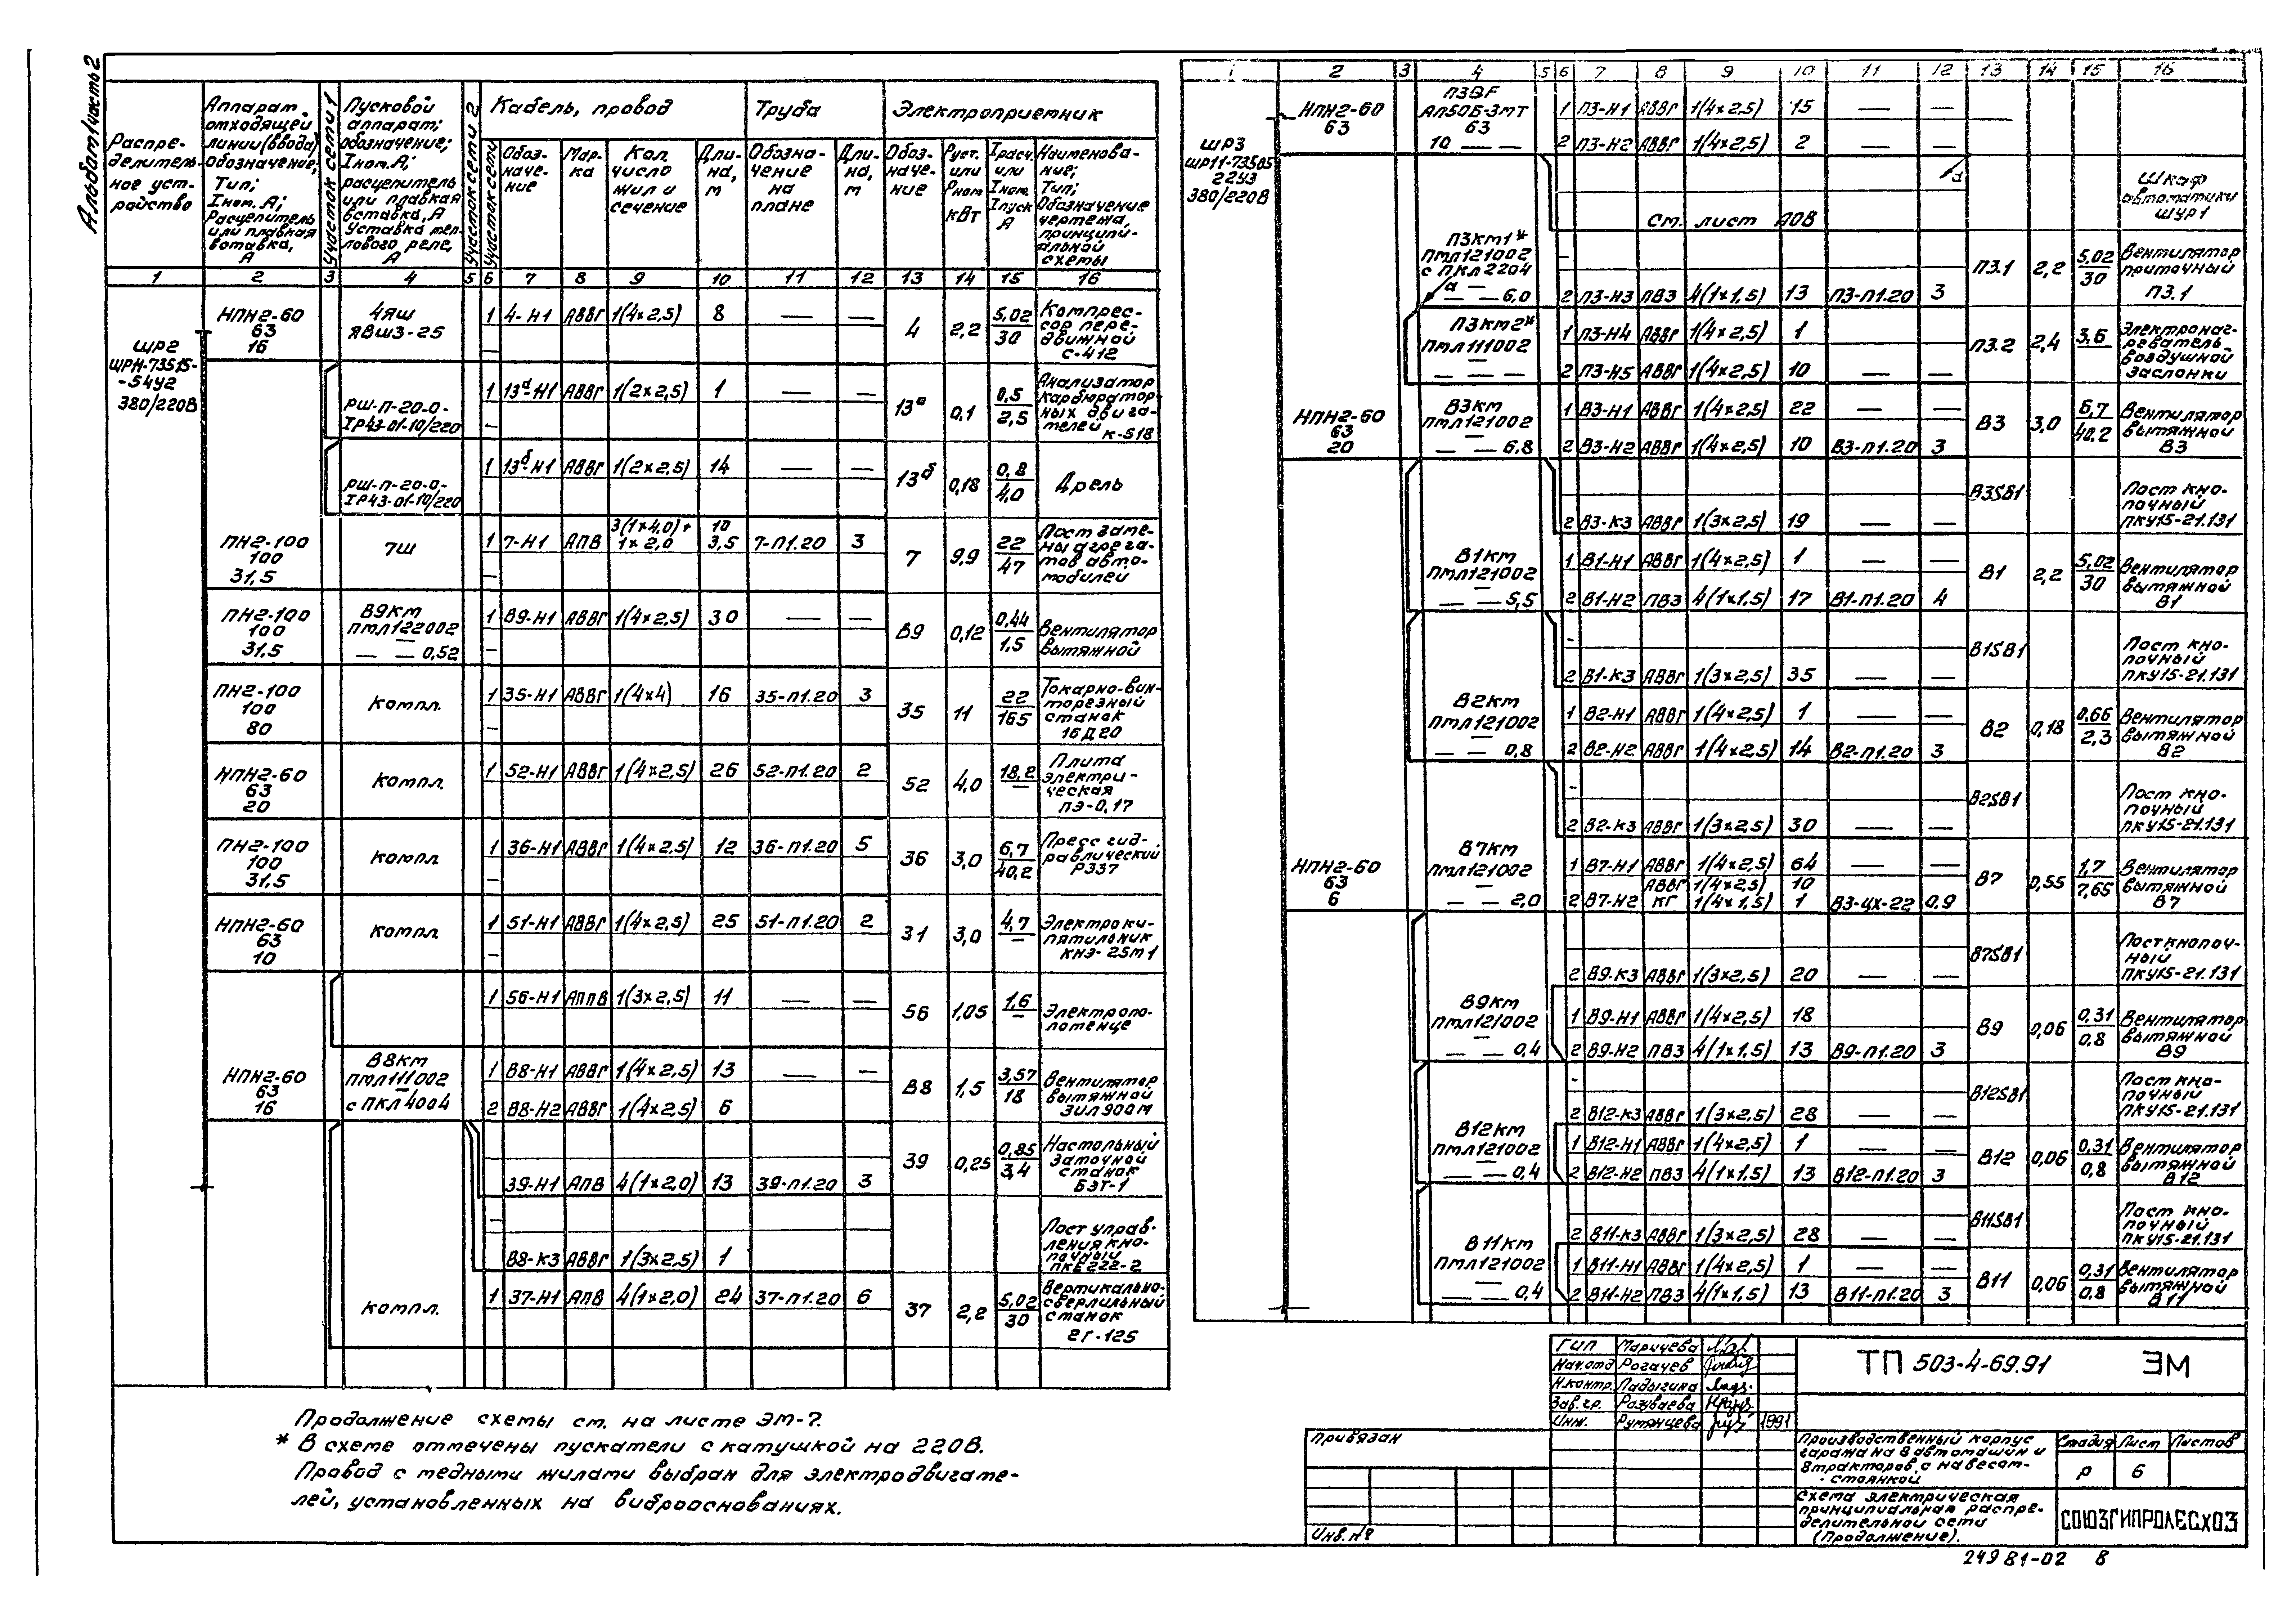 Альбом 1 часть 2
Распре-
делитель-
ное уст-
ройство
Аппарат
отходящей
линии (ввода)
Обозначение;
Тип;
Iном. А;
Расцепитель
или плавкая
вставка,
А
Участок сети 1
Пусковой
аппарат;
обозначение;
Iном. А;
расцепитель
или плавкая
вставка, А
Уставка теп-
лового реле,
А
Участок сети 2
Участок сети
Кабель, провод
Труба
Электроприемник
Обоз-
наче-
ние
Мар-
ка
Кол.
число
жил и
сечение
Дли-
на,
м
Обозна-
чение
на
плане
Дли-
на,
м
Обоз-
наче-
ние
Руст.
или
Рном
кВт
Iрасч.
или
Iном.
Iпуск
А
Наименова-
ние;
Тип;
Обозначение
чертежа,
принципи-
альной
схемы
1 2 3 4 5 6 7 8 9 10 11 12 13 14 15 16
ШР2
ШР11-73515-
-54У2
380/220В
НПН2-60
63
16
4ЯШ
ЯВШ3-25
1 4-Н1 АВВГ 1(4×2,5) 8 — —
4 2,2 5,02/30
Компрес-
сор пере-
движной
С-412
РШ-П-20-0-
IP43-01-10/220
1 13а-Н1 АВВГ 1(2×2,5) 1 — —
13а 0,1 0,5/2,5
Анализатор
карбюратор-
ных двига-
телей К-518
РШ-П-20-0-
IP43-01-10/220
1 13б-Н1 АВВГ 1(2×2,5) 14 — —
13б 0,18 0,8/4,0 Дрель
ПН2-100
100
31,5
7Ш
3(1×4,0)+ 10
1 7-Н1 АПВ 1×2,0 3,5 7-П1.20 3
7 9,9 22/47
Пост заме-
ны агрега-
тов авто-
мобилей
ПН2-100
100
31,5
В9КМ
ПМЛ122002
— — 0,52
1 В9-Н1 АВВГ 1(4×2,5) 30 — —
В9 0,12 0,44/1,5
Вентилятор
вытяжной
ПН2-100
100
80
компл.
1 35-Н1 АВВГ 1(4×4) 16 35-П1.20 3
35 11 22/165
Токарно-вин-
торезный
станок
16Д20
НПН2-60
63
20
компл.
1 52-Н1 АВВГ 1(4×2,5) 26 52-П1.20 2
52 4,0 18,2/—
Плита
электри-
ческая
ПЭ-0,17
ПН2-100
100
31,5
компл.
1 36-Н1 АВВГ 1(4×2,5) 12 36-П1.20 5
36 3,0 6,7/40,2
Пресс гид-
равлический
Р337
НПН2-60
63
10
компл.
1 51-Н1 АВВГ 1(4×2,5) 25 51-П1.20 2
31 3,0 4,7/—
Электроки-
пятильник
КНЭ-25М1
1 56-Н1 АППВ 1(3×2,5) 11 — —
56 1,05 1,6/—
Электропо-
лотенце
НПН2-60
63
16
В8КМ
ПМЛ111002
—
с ПКЛ 4004
1 В8-Н1 АВВГ 1(4×2,5) 13 — —
2 В8-Н2 АВВГ 1(4×2,5) 6
В8 1,5 3,57/18
Вентилятор
вытяжной
ЗИЛ900М
39-Н1 АПВ 4(1×2,0) 13 39-П1.20 3
39 0,25 0,85/3,4
Настольный
заточной
станок
БЭТ-1
В8-К3 АВВГ 1(3×2,5) 1
Пост управ-
ления кно-
почный
ПКЕ222-2
компл.
1 37-Н1 АПВ 4(1×2,0) 24 37-П1.20 6
37 2,2 5,02/30
Вертикально-
сверлильный
станок
2Г-125
Продолжение схемы см. на листе ЭМ-7.
* В схеме отмечены пускатели с катушкой на 220В.
Провод с медными жилами выбран для электродвигате-
лей, установленных на виброоснованиях.
1 2 3 4 5 6 7 8 9 10 11 12 13 14 15 16
ШР3
ШР11-73505
22У3
380/220В
НПН2-60
63
П3ВF
АП50Б-3МТ
63
10 — —
1 П3-Н1 АВВГ 1(4×2,5) 15 — —
2 П3-Н2 АВВГ 1(4×2,5) 2 — —
а
См. лист АОВ
Шкаф
автоматики
ШУР1
П3КМ1*
ПМЛ121002
с ПКЛ2204
а
— — 6,0
2 П3-Н3 ПВ3 4(1×1,5) 13 П3-П1.20 3
П3.1 2,2 5,02/30
Вентилятор
приточный
П3.1
П3КМ2*
ПМЛ111002
— — —
1 П3-Н4 АВВГ 1(4×2,5) 1
2 П3-Н5 АВВГ 1(4×2,5) 10 — —
П3.2 2,4 3,6
Электронаг-
реватель
воздушной
заслонки
НПН2-60
63
20
В3КМ
ПМЛ121002
—
— — 6,8
1 В3-Н1 АВВГ 1(4×2,5) 22 — —
2 В3-Н2 АВВГ 1(4×2,5) 10 В3-П1.20 3
В3 3,0 6,7/40,2
Вентилятор
вытяжной
В3
2 В3-К3 АВВГ 1(3×2,5) 19 — —
В3SB1
Пост кно-
почный
ПКУ15-21.131
В1КМ
ПМЛ121002
— — 5,5
1 В1-Н1 АВВГ 1(4×2,5) 1 — —
2 В1-Н2 ПВ3 4(1×1,5) 17 В1-П1.20 4
В1 2,2 5,02/30
Вентилятор
вытяжной
В1
2 В1-К3 АВВГ 1(3×2,5) 35 — —
В1SB1
Пост кно-
почный
ПКУ15-21.131
В2КМ
ПМЛ121002
—
— — 0,8
1 В2-Н1 АВВГ 1(4×2,5) 1 — —
2 В2-Н2 АВВГ 1(4×2,5) 14 В2-П1.20 3
В2 0,18 0,66/2,3
Вентилятор
вытяжной
В2
2 В2-К3 АВВГ 1(3×2,5) 30 — —
В2SB1
Пост кно-
почный
ПКУ15-21.131
НПН2-60
63
6
В7КМ
ПМЛ121002
—
— — 2,0
1 В7-Н1 АВВГ 1(4×2,5) 64 — —
АВВГ 1(4×2,5) 10
2 В7-Н2 КГ 1(4×1,5) 1 В3-ЦХ-22 0,9
В7 0,55 1,7/7,65
Вентилятор
вытяжной
В7
2 В9-К3 АВВГ 1(3×2,5) 20 — —
В7SB1
Пост кнопоч-
ный
ПКУ15-21.131
В9КМ
ПМЛ121002
—
— — 0,4
1 В9-Н1 АВВГ 1(4×2,5) 18
2 В9-Н2 ПВ3 4(1×1,5) 13 В9-П1.20 3
В9 0,06 0,31/0,8
Вентилятор
вытяжной
В9
2 В12-К3 АВВГ 1(3×2,5) 28 — —
В12SB1
Пост кно-
почный
ПКУ15-21.131
В12КМ
ПМЛ121002
—
— — 0,4
1 В12-Н1 АВВГ 1(4×2,5) 1 — —
2 В12-Н2 ПВ3 4(1×1,5) 13 В12-П1.20 3
В12 0,06 0,31/0,8
Вентилятор
вытяжной
В12
2 В11-К3 АВВГ 1(3×2,5) 28 — —
В11SB1
Пост кно-
почный
ПКУ15-21.131
В11КМ
ПМЛ121002
— — 0,4
1 В11-Н1 АВВГ 1(4×2,5) 1 — —
2 В11-Н2 ПВ3 4(1×1,5) 13 В11-П1.20 3
В11 0,06 0,31/0,8
Вентилятор
вытяжной
В11
ГИП Маричева
Нач.отд Рогачев
Н.контр. Ладыгина
Зав.гр. Разуваева
Инж. Румянцева 1991
ТП 503-4-69.91 ЭМ
Привязан
Инв. №
Производственный корпус
гаража на 8 автомашин и
8 тракторов, с навесом-
-стоянкой
Стадия Лист Листов
Р 6
Схема электрическая
принципиальная распре-
делительной сети
(Продолжение).
СОЮЗГИПРОЛЕСХОЗ
24981-02 8